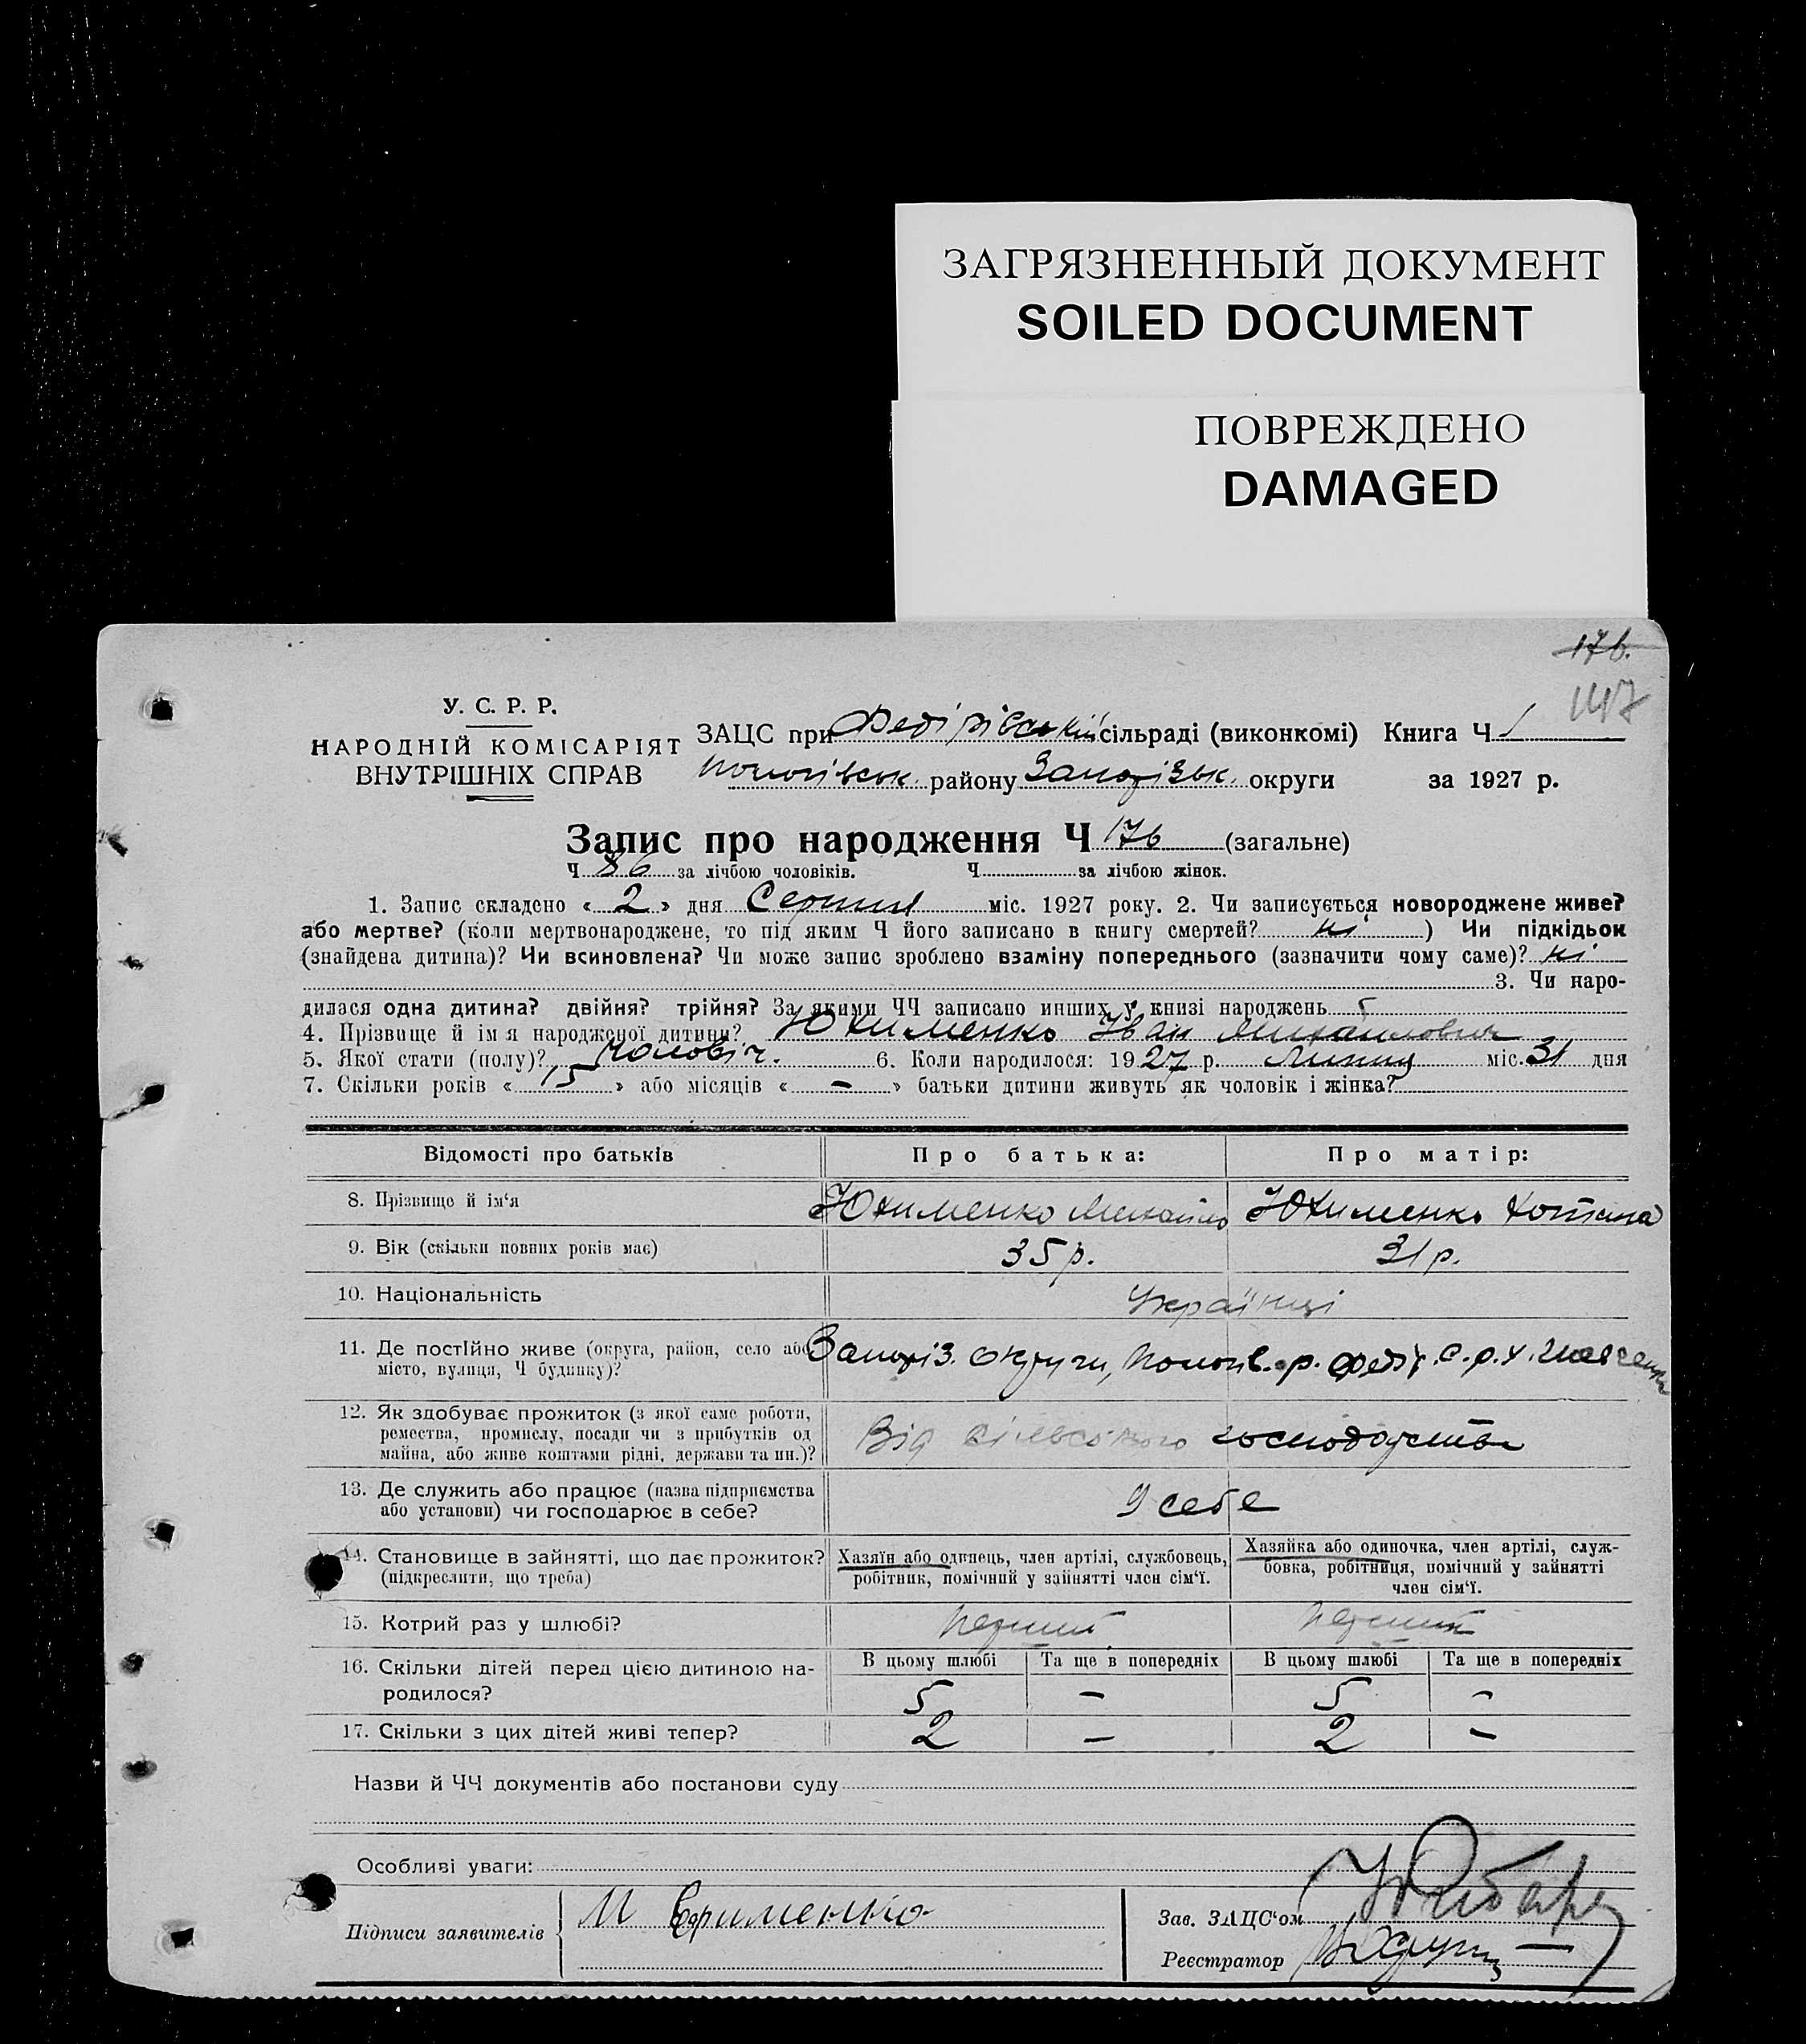 ЗАГРЯЗНЕННЫЙ ДОКУМЕНТ
SOILED DOCUMENT
ПОВРЕЖДЕНО
DAMAGED
176.
147
У. С. Р. Р.
НАРОДНІЙ КОМІСАРІЯТ
ВНУТРІШНІХ СПРАВ
ЗАЦС при Федірівській сільраді (виконкомі) Книга Ч 1
Пологівськ. району Запорізьк. округи за 1927 р.
Запис про народження Ч 176 (загальне)
Ч 86 за лічбою чоловіків. Ч за лічбою жінок.
1. Запис складено « 2 » дня Серпня міс. 1927 року. 2. Чи записується новороджене живе?
або мертве? (коли мертвонароджене, то під яким Ч його записано в книгу смертей? ні ) Чи підкідьок
(знайдена дитина)? Чи всиновлена? Чи може запис зроблено взаміну попереднього (зазначити чому саме)? ні
3. Чи наро-
дилася одна дитина? двійня? трійня? За якими ЧЧ записано инших у книзі народжень
4. Прізвище й ім'я народженої дитини? Юхименко Іван Михайлович
5. Якої стати (полу)? чоловіч. 6. Коли народилося: 1927 р. Липця міс. 31 дня
7. Скільки років « 15 » або місяців « – » батьки дитини живуть як чоловік і жінка?
Відомості про батьків Про батька: Про матір:
8. Прізвище й ім'я Юхименко Михайло Юхименко
9. Вік (скільки повних років має) 35 р. 31 р.
10. Національність Українці
11. Де постійно живе (округа, район, село або Запоріз. округи, Пологів. р. Федір. с.р. х.
місто, вулиця, Ч будинку)?
12. Як здобуває прожиток (з якої саме роботи,
ремества, промислу, посади чи з прибутків од Від сільського господарства
майна, або живе коштами рідні, держави та ин.)?
13. Де служить або працює (назва підприємства
або установи) чи господарює в себе? У себе
14. Становище в зайнятті, що дає прожиток? Хазяїн або одинець, член артілі, службовець, Хазяйка або одиночка, член артілі, служ-
(підкреслити, що треба) робітник, помічний у зайнятті член сім'ї. бовка, робітниця, помічний у зайнятті
член сім'ї.
15. Котрий раз у шлюбі? перший перший
16. Скільки дітей перед цією дитиною на- В цьому шлюбі Та ще в попередніх В цьому шлюбі Та ще в попередніх
родилося? 5 – 5 –
17. Скільки з цих дітей живі тепер? 2 – 2 –
Назви й ЧЧ документів або постанови суду
Особливі уваги:
Підписи заявителів М Ефименко
Зав. ЗАЦС'ом
Реєстратор